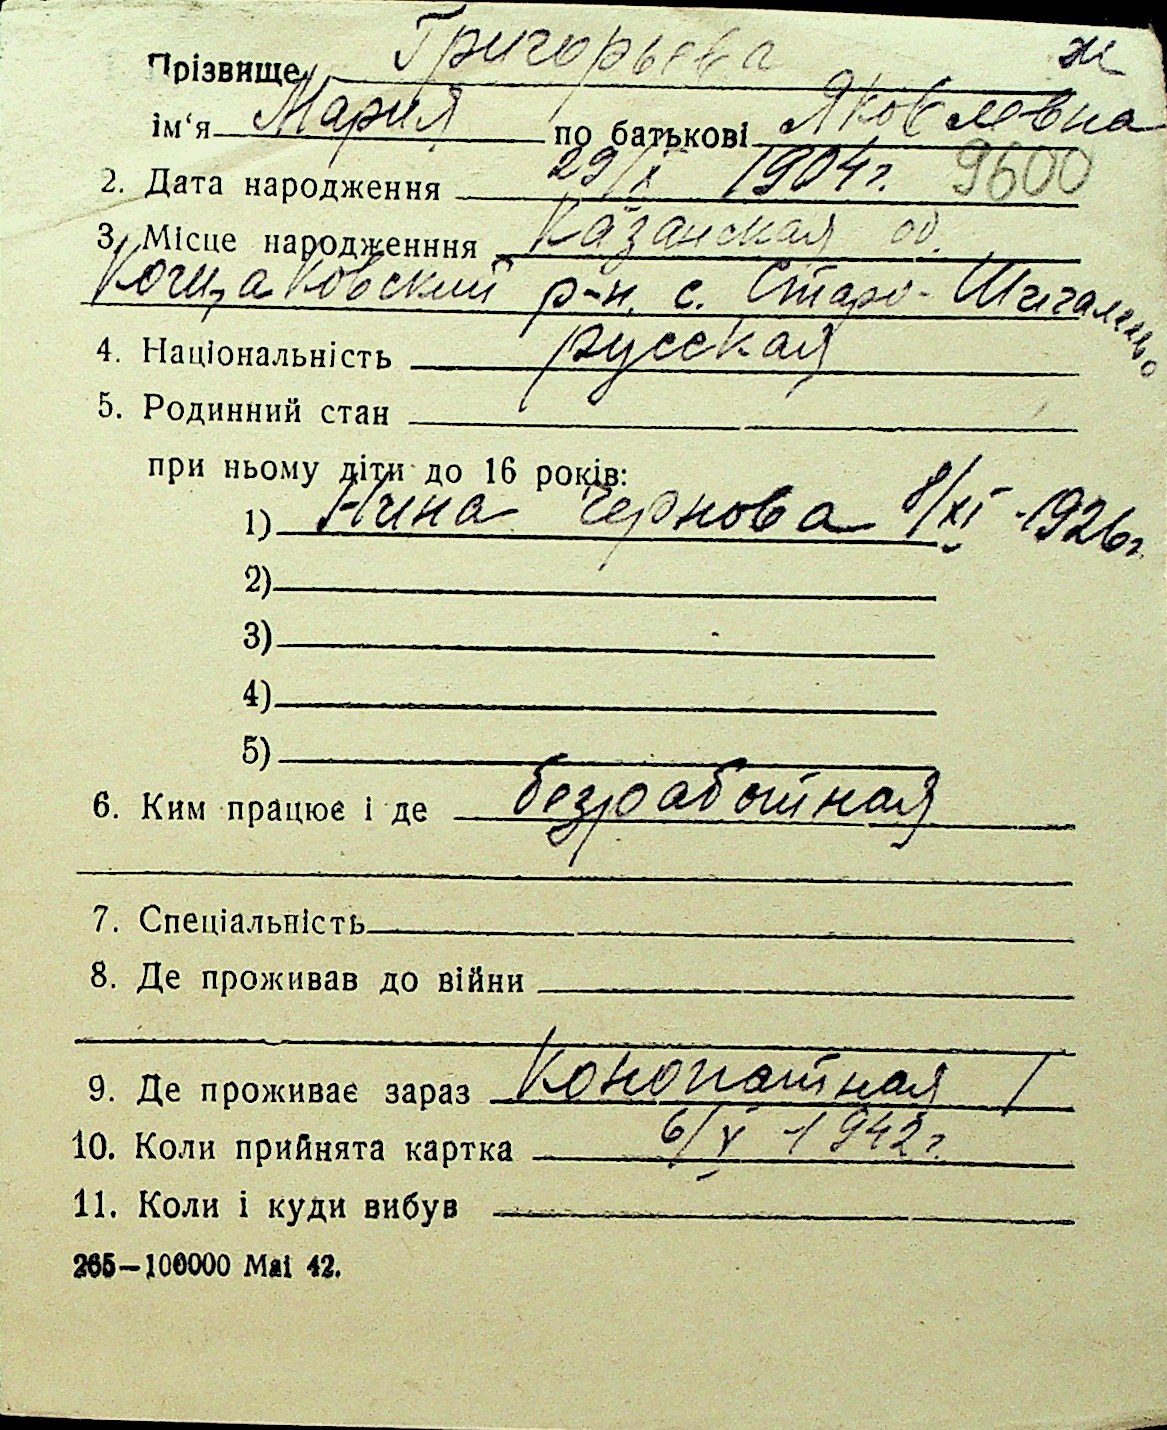 Прізвище Григорьева ж
ім‘я Мария по батькові Яковлевна
2. Дата народження 29/X 1904 г. 9600
3. Місце народженння Казанская об.
р-н. с. Старо-Шигалеево
4. Національність русская
5. Родинний стан
при ньому діти до 16 років:
1) Нина Чернова 8/XI -1926г.
2)
3)
4)
5)
6. Ким працює і де безработная
7. Спеціальність
8. Де проживав до війни
9. Де проживає зараз Конопатная 1
10. Коли прийнята картка 6/V -1942г.
11. Коли і куди вибув
265—100000 Mai 42.